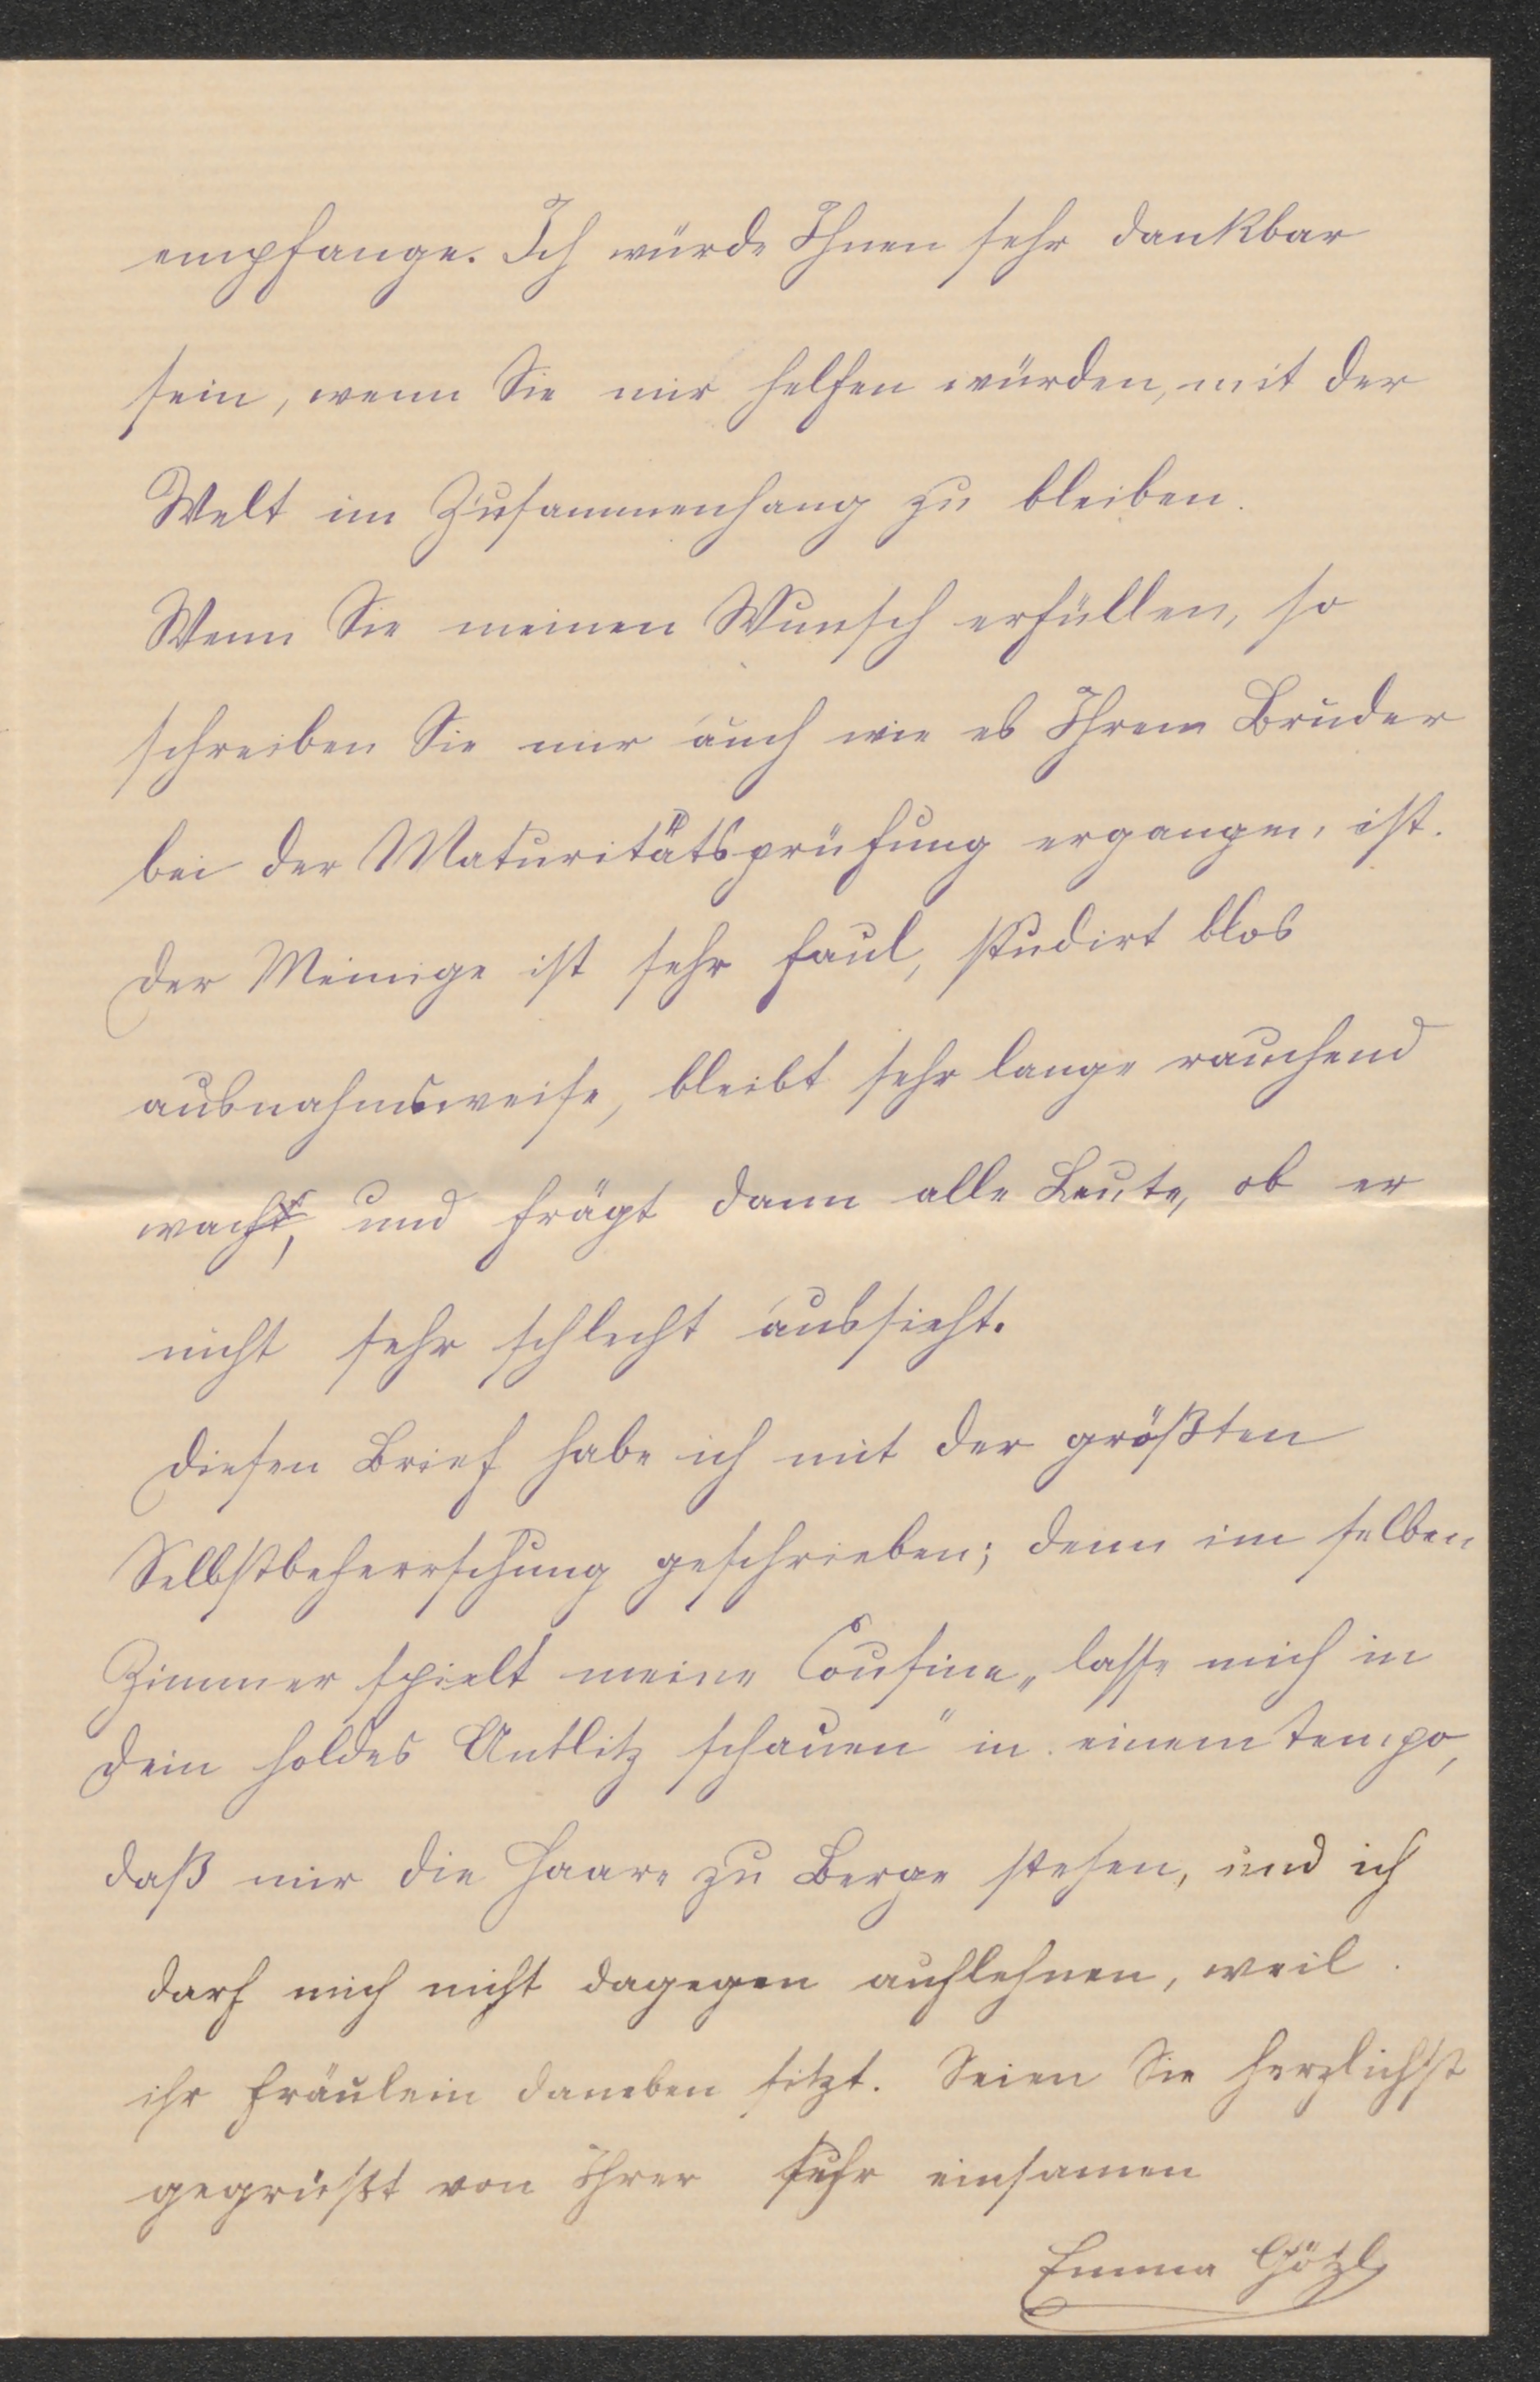 empfange. Ich würde Ihnen sehr dankbar
sein, wenn Sie mir helfen würden, mit der
Welt im Zusammenhang zu bleiben.
Wenn Sie meinen Wunsch erfüllen, so
schreiben Sie mir auch wie es Ihrem Bruder
bei der Maturitätsprüfung ergangen ist.
Der Meinige ist sehr faul, studirt blos
ausnahmsweise, bleibt sehr lange rauchend
wach, und frägt dann alle Leute, ob er
nicht sehr schlecht aussieht.
Diesen Brief habe ich mit der größten
Selbstbeherrschung geschrieben; denn im selben
Zimmer spielt meine Cousine „lasse mich in
Dein holdes Antlitz schauen" in einem tempo,
daß mir die Haare zu Berge stehen, und ich
darf mich nicht dagegen auflehnen, weil
ihr Fräulein daneben sitzt. Seien Sie herzlichst
gegrüßt von Ihrer sehr einsamen
Emma Götzl